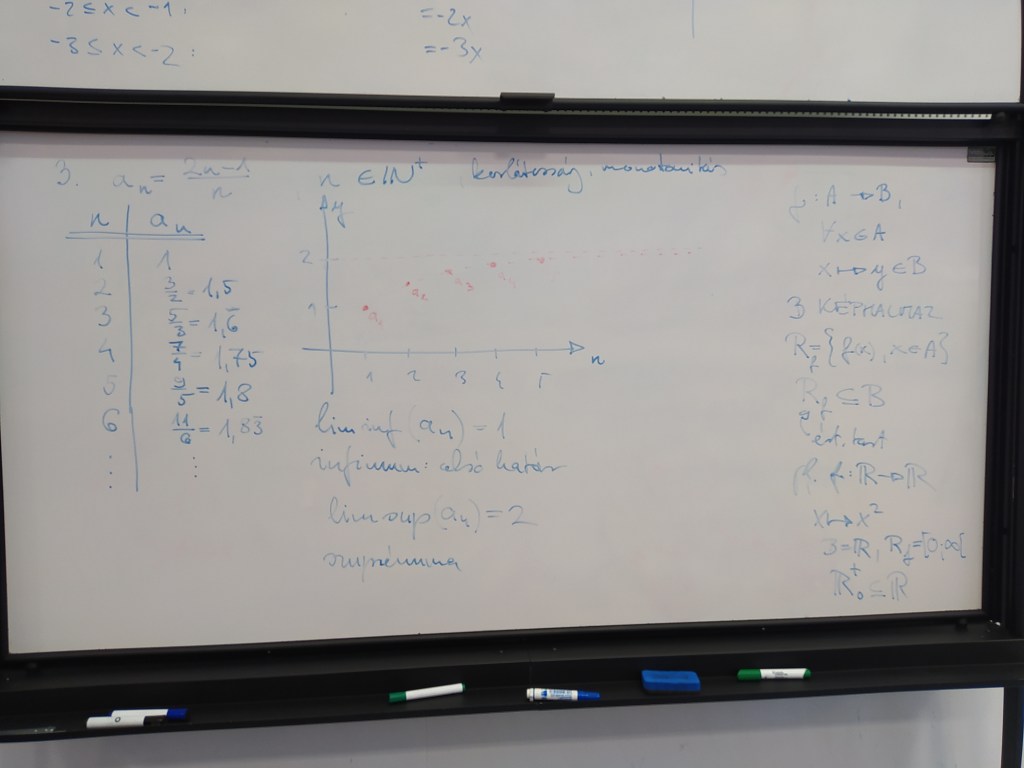 -2 ≤ x < -1: = -2x
-3 ≤ x < -2: = -3x
3. aₙ = (2n-1)/n n ∈ ℕ⁺ korlátosság, monotonitás
n | aₙ
1 | 1
2 | 3/2 = 1,5
3 | 5/3 = 1,6̄
4 | 7/4 = 1,75
5 | 9/5 = 1,8
6 | 11/6 = 1,83̄
⋮ ⋮
y
2
1
a₁ a₂ a₃ a₄
1 2 3 4 5 n
lim inf (aₙ) = 1
infimum: alsó határ
lim sup (aₙ) = 2
szuprémuma
f: A → B,
∀x ∈ A
x ↦ y ∈ B
B KÉPHALMAZ
R_f = {f(x), x ∈ A}
R_f ⊆ B
ért. tart
pl. f: ℝ → ℝ
x ↦ x²
B = ℝ, R_f = [0; ∞[
ℝ₀⁺ ⊆ ℝ